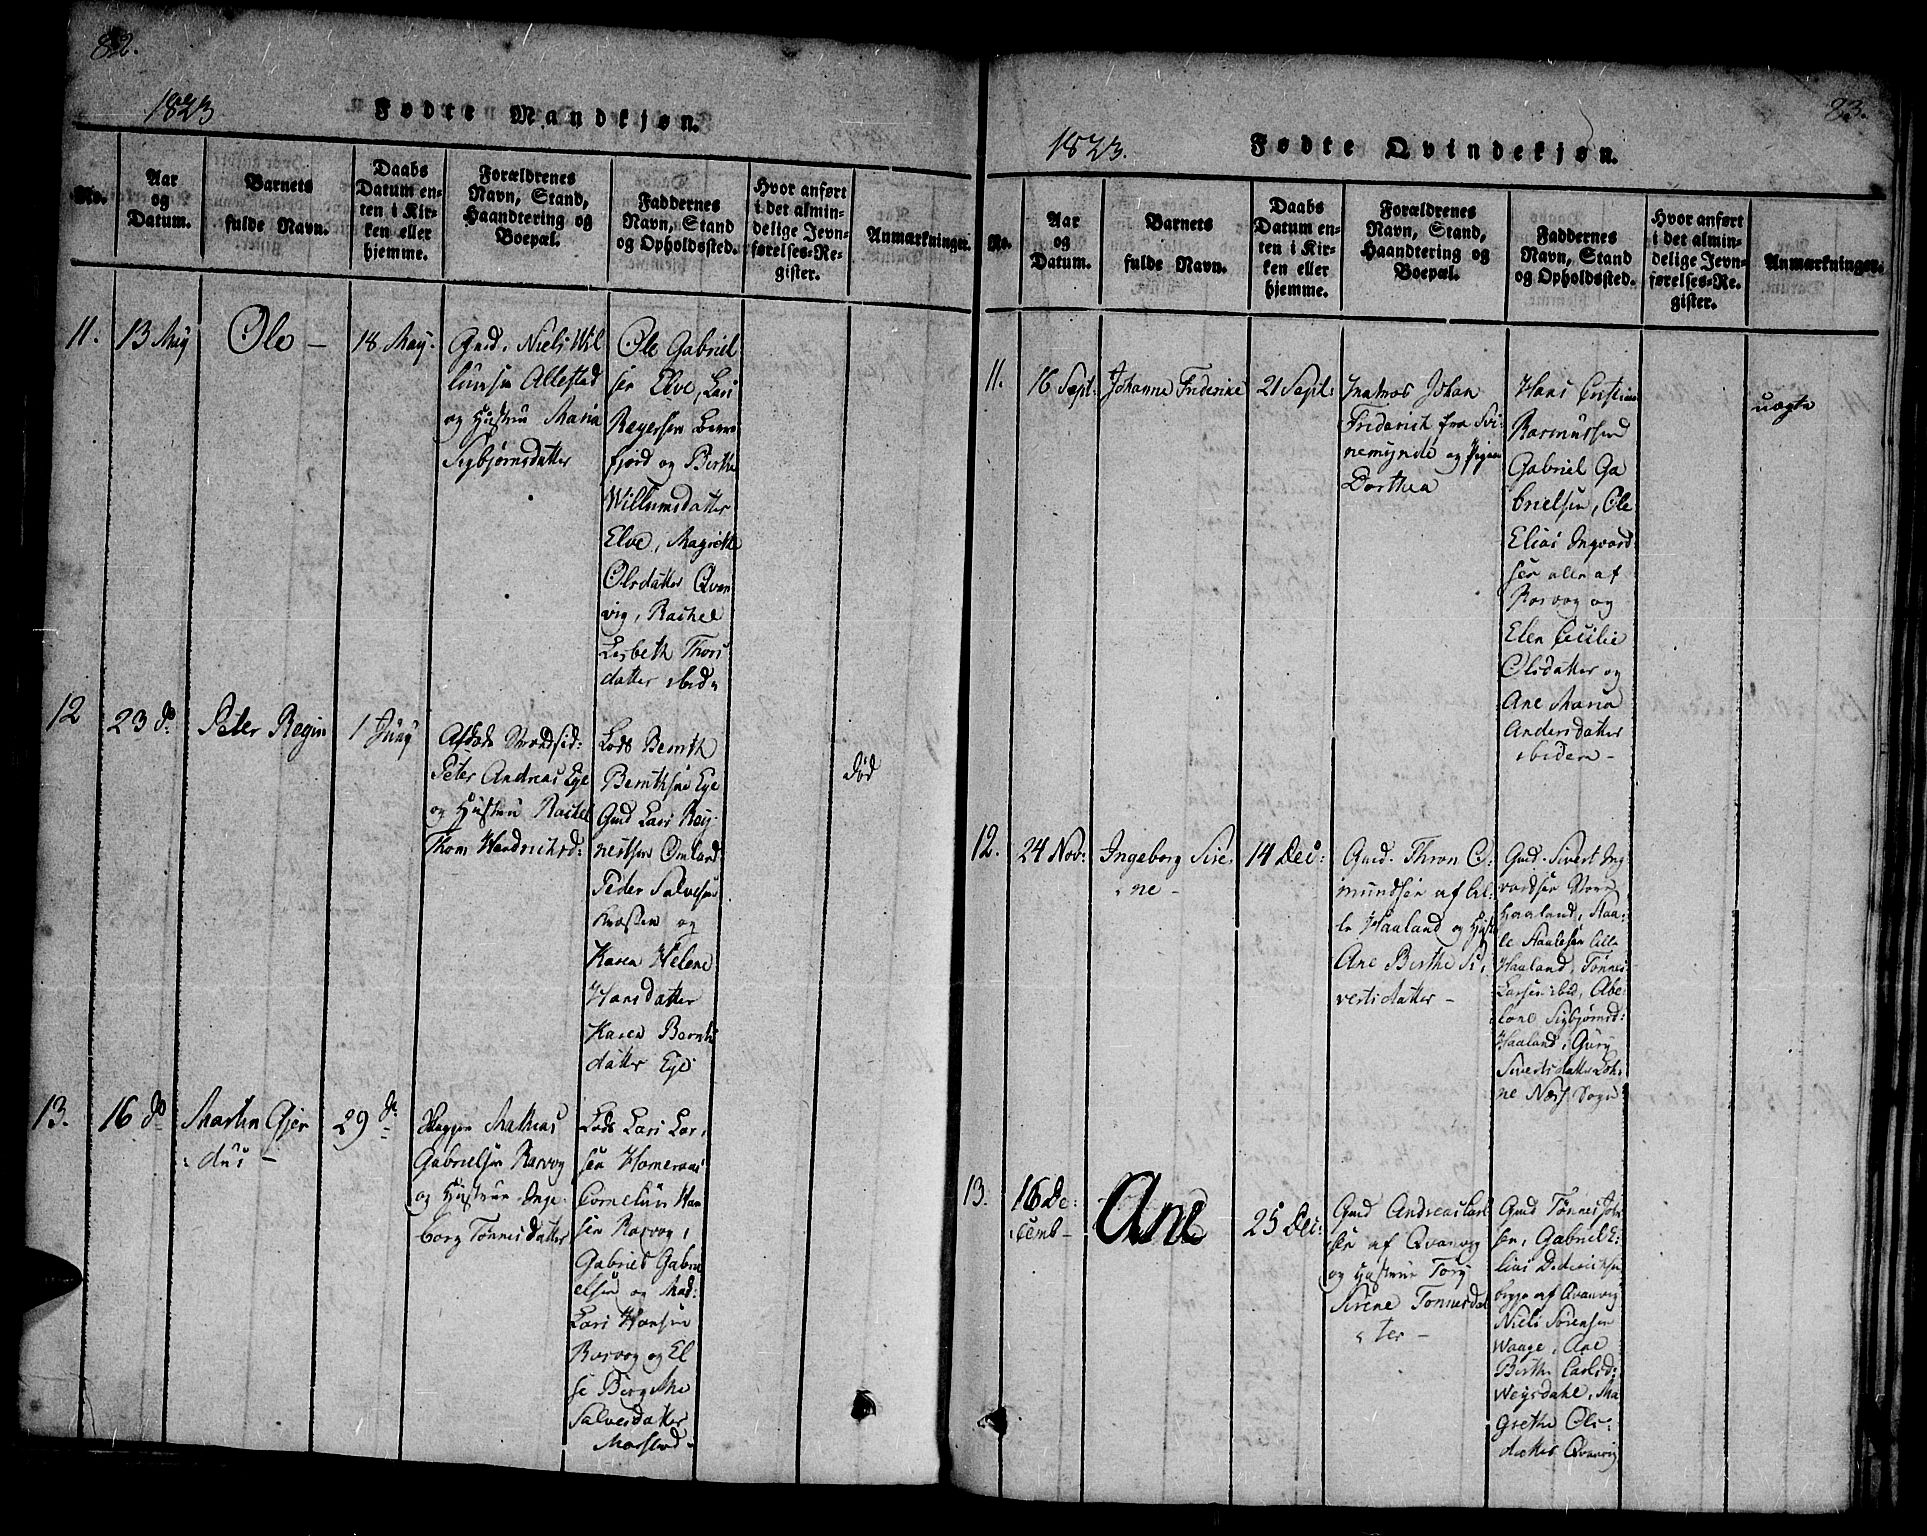 82.
1823
Fødte Mandkjøn.
No.
Aar
og
Datum.
Barnets
fulde Navn.
Daabs
Datum en-
ten i Kir-
ken eller
hjemme.
Forældrenes
Navn, Stand,
Haandtering og
Boepæl.
Faddernes
Navn, Stand
og Opholdssted.
Hvor anført
i det almin-
delige Jevn-
førelses-Re-
gister.
Anmærkninger.
11.
13 May
Ole -
18 May.
Gmd. Niels Wil
lumsen Allestad
og Hustrue Maria
Sigbjørnsdatter
Ole Gabriel
sen Elve, Lars
Reyersen
fjord og Berthe
Willumsdatter
Elve, Magrethe
Olsdatter Qvan
vig, Rachel
Lisbeth Thors
datter ibid
12
23 do
Peter Regin
1 Juny
Strandsid:
Peter Andreas Ege
og Hustrue Rachel
Thom Hendrichsd:
Lods Bernth
Bernthsen Ege
Gmd Lars Rey
nertsen Omland
Peder Salvesen
og
Karen Helene
Hansdatter
Karen Bernts
datter Ege
død
13.
16 do
Martin Gjer
dus -
29 do
Mathias
Gabrielsen Rasvog
og Hustrue Inge
borg Tønnesdatter
Lods Lars Lar
sen Homeraas
Cornelius Han
sen Rasvog,
Gabriel Gabri
elsen og Mad:
Lars Hansen
Rasvog og El
se Bergithe
Salvesdatter
83.
1823.
Fødte Qvindekjøn.
No.
Aar
og
Datum.
Barnets
fulde Navn.
Daabs
Datum en-
ten i Kir-
ken eller
hjemme.
Forældrenes
Navn, Stand,
Haandtering og
Boepæl.
Faddernes
Navn, Stand
og Opholdssted.
Hvor anført
i det almin-
delige Jevn-
førelses-Re-
gister.
Anmærkninger.
11.
16 Sept:
Johanne Friderice
21 Sept:
Matros Johan
Friderich fra Svi
nemynde og Pigen
Dorthea
Hans Cristian
Rasmussen
Gabriel Ga
brielsen, Ole
Elias Ingvard
sen alle af
Rasvog og
Elen Cecilie
Olsdatter og
Ane Maria
Andersdatter
ibidem -
uægte
12.
24 Nov:
Ingeborg Sire
ne -
14 Dec:
Gmd. Thron O
mundsen af Lil
le Haaland og Hust
Ane Berthe Si
vertsdatter -
Gmd. Sivert Ing
vardsen Store
Haaland, Staa-
le Staalesen Lille
Haaland, Tønnes
Larsen ibid, Abe-
lone Sigbjørnsd:
Haaland, Gury
Sivertsdatter Loh-
ne Næs Sogn
13.
16 De:
cemb -
Ane
25 Dec:
Gmd Andreas Carl
sen af Qvanvig
og Hustrue Tory
Sirene Tønnesdat
ter -
Gmd Tønnes Joh
sen, Gabriel E-
lias Dideriksen
begge af Qvanvig
Niels Sørensen
Waage, Ane
Berthe Carlsd:
Weysdahl, Ma
grethe Ols
datter Qvanvig